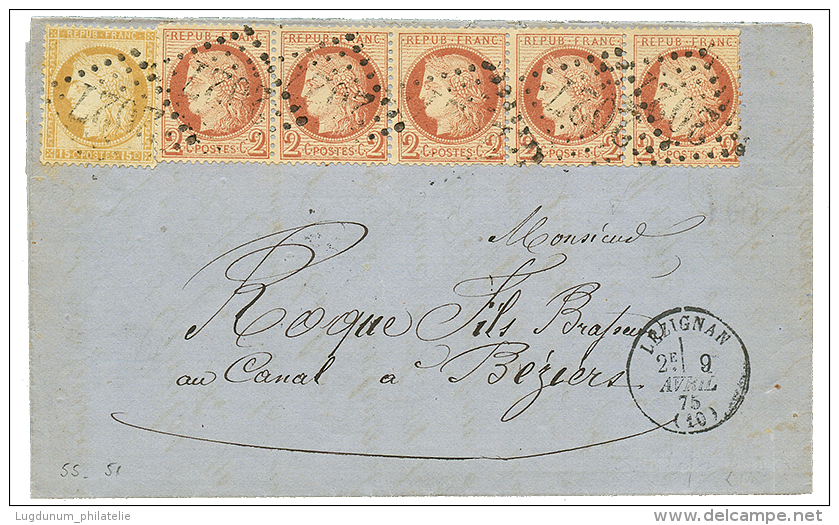 REPUB·FRANC
15 C·POSTES·15 C
REPUB·FRANC
2 C·POSTES·C 2
REPUB·FRANC
2 C·POSTES·C 2
REPUB·FRANC
2 C·POSTES·C 2
REPUB·FRANC
2 C·POSTES·C 2
REPUB·FRANC
2 C·POSTES·C 2
Monsieur
Roque Fils Brasseur
au Canal a Béziers
LEZIGNAN
2E 9
AVRIL
75
(10)
55 - 51
Lugdunum_philatelie
delcampe.net